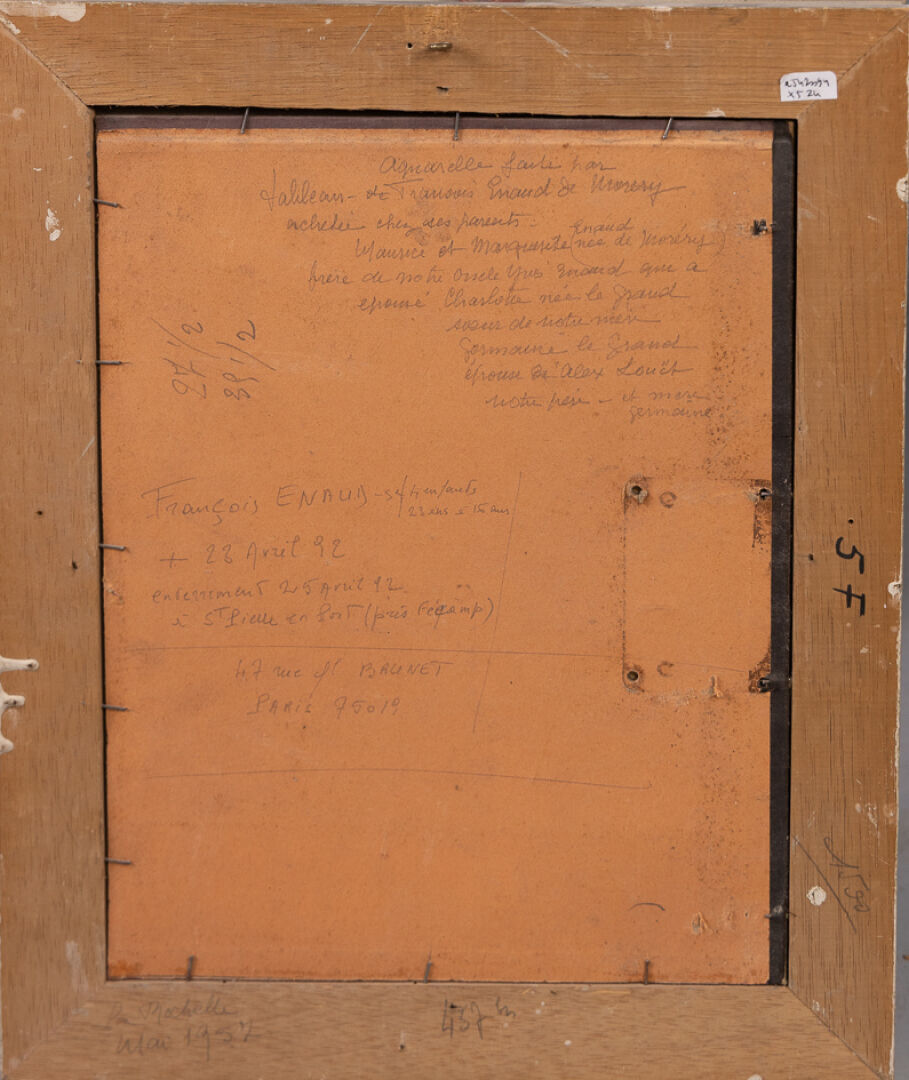 aquarelle faite par
tableau - de François Enaud de Morery
achetée chez ses parents -
Enaud
Maurice et Marguerite née de Morery
frère de notre oncle Yves Enaud qui a
épousé Charlotte née le Grand
sœur de notre mère
Germaine le Grand
épouse de Alex Louët
notre père - et mère
Germaine
27 1/2
39 1/2
François ENAUD - 4 enfants
23 ans à 15 ans
+ 22 Avril 92
enterrement 25 Avril 92
à St Pierre en Port (près Fécamp)
47 rue BAUNET
PARIS 75019
57
1590
La Rochelle
Mai 1957
437